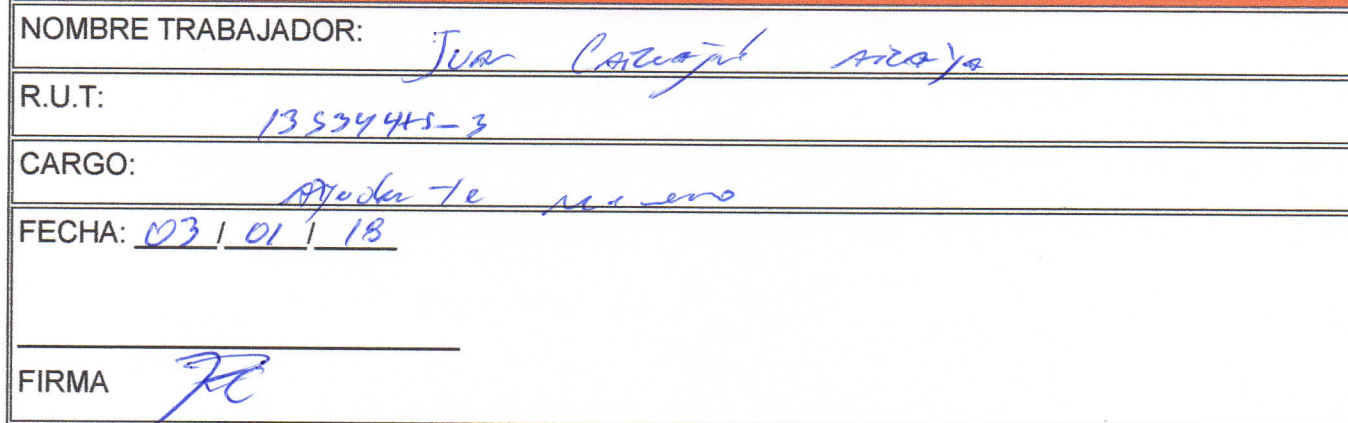 NOMBRE TRABAJADOR: Juan Carvajal Araya
R.U.T: 13534475-3
CARGO: Ayudante
FECHA: 03 / 01 / 18
FIRMA